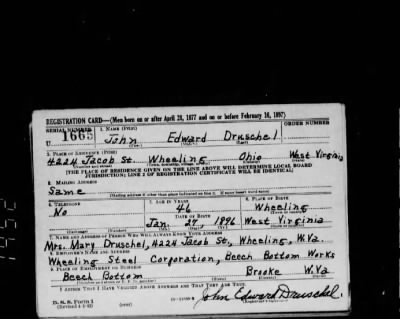 REGISTRATION CARD—(Men born on or after April 28, 1877 and on or before February 16, 1897)
SERIAL NUMBER 1. NAME (Print) ORDER NUMBER
U 1665 John Edward Druschel
(First) (Middle) (Last)
2. PLACE OF RESIDENCE (Print)
4224 Jacob St. Wheeling Ohio West Virginia
(Number and street) (Town, township, village, or city) (County) (State)
[THE PLACE OF RESIDENCE GIVEN ON THE LINE ABOVE WILL DETERMINE LOCAL BOARD
JURISDICTION; LINE 2 OF REGISTRATION CERTIFICATE WILL BE IDENTICAL]
3. MAILING ADDRESS
Same
(Mailing address if other than place indicated on line 2. If same insert word same)
4. TELEPHONE 5. AGE IN YEARS 6. PLACE OF BIRTH
No 46 Wheeling
DATE OF BIRTH (Town or county)
Jan. 27 1896 West Virginia
(Mo.) (Day) (Yr.) (State or country)
7. NAME AND ADDRESS OF PERSON WHO WILL ALWAYS KNOW YOUR ADDRESS
Mrs. Mary Druschel, 4224 Jacob St., Wheeling, W.Va.
8. EMPLOYER'S NAME AND ADDRESS
Wheeling Steel Corporation, Beech Bottom Works
9. PLACE OF EMPLOYMENT OR BUSINESS
Beech Bottom Brooke W.Va
(Number and street or R. F. D. number) (Town) (County) (State)
I AFFIRM THAT I HAVE VERIFIED ABOVE ANSWERS AND THAT THEY ARE TRUE.
D. S. S. Form 1
(Revised 4-1-42) (over) John Edward Druschel.